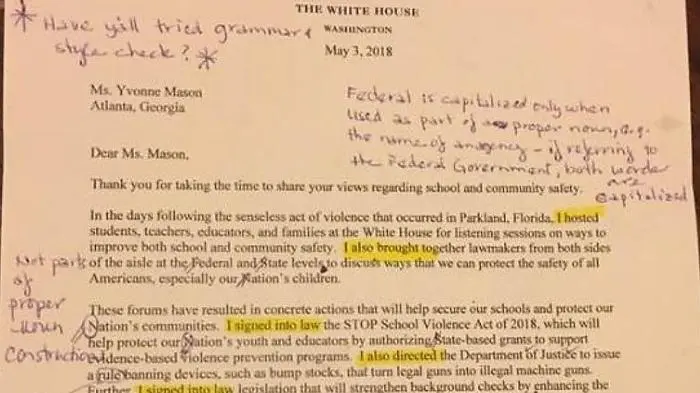 THE WHITE HOUSE
* Have y'all tried grammar & WASHINGTON
style check? * May 3, 2018
Ms. Yvonne Mason
Atlanta, Georgia
Federal is capitalized only when
used as part of a proper noun, e.g.
the name of an agency - if referring to
the Federal Government, both words
are
capitalized
Dear Ms. Mason,
Thank you for taking the time to share your views regarding school and community safety.
In the days following the senseless act of violence that occurred in Parkland, Florida, I hosted
students, teachers, educators, and families at the White House for listening sessions on ways to
improve both school and community safety. I also brought together lawmakers from both sides
of the aisle at the Federal and State levels to discuss ways that we can protect the safety of all
Americans, especially our Nation's children.
Not part
of
proper
noun
construction
These forums have resulted in concrete actions that will help secure our schools and protect our
Nation's communities. I signed into law the STOP School Violence Act of 2018, which will
help protect our Nation's youth and educators by authorizing State-based grants to support
evidence-based violence prevention programs. I also directed the Department of Justice to issue
a rule banning devices, such as bump stocks, that turn legal guns into illegal machine guns.
Further, I signed into law legislation that will strengthen background checks by enhancing the